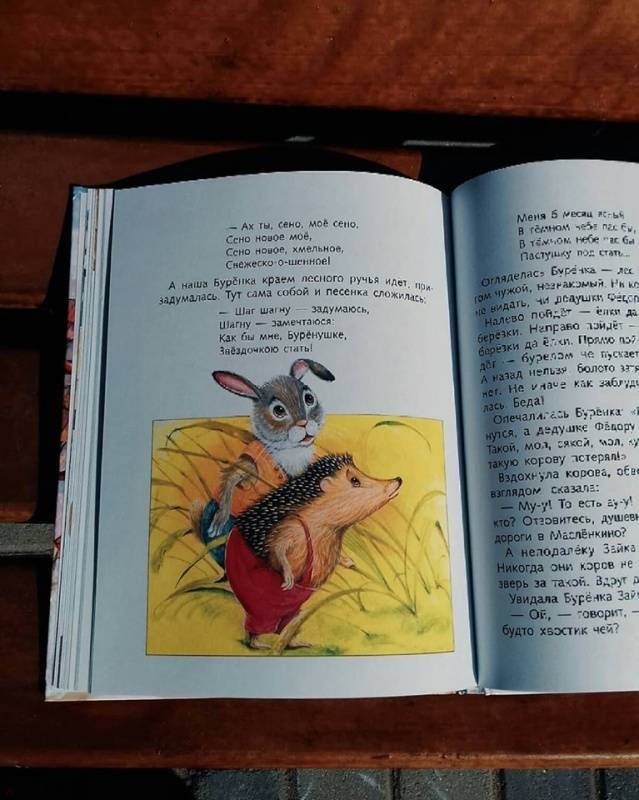 — Ах ты, сено, моё сено,
Сено новое моё,
Сено новое, хмельное,
Свежеско-о-шенное!
А наша Бурёнка краем лесного ручья идёт, при-
задумалась. Тут сама собой и песенка сложилась:
— Шаг шагну — задумаюсь,
Шагну — замечтаюсь:
Как бы мне, Бурёнушке,
Звёздочкою стать!
Меня б месяц
В тёмном небе пас бы,
В тёмном небе пас бы
Пастушку под стать...
Огляделась Бурёнка — лес
гом чужой, незнакомый. Ни
не видать, ни дедушки Фёдор
Налево пойдёт — ёлки да
берёзки. Направо пойдёт —
берёзки да ёлки. Прямо
дёт — бурелом не пускает.
А назад нельзя: болото
нет. Не иначе как заблуд
лась. Беда!
Опечалилась Бурёнка:
нутся, а дедушке Фёдору
Такой, мол, сякой, мол,
такую корову потерял!»
Вздохнула корова,
взглядом сказала:
— Му-у! То есть ау-у!
кто? Отзовитесь, душевн
дороги в Маслёнкино?
А неподалёку Зайка
Никогда они коров не
зверь за такой. Вдруг
Увидала Бурёнка Зай
— Ой, — говорит, —
будто хвостик чей?